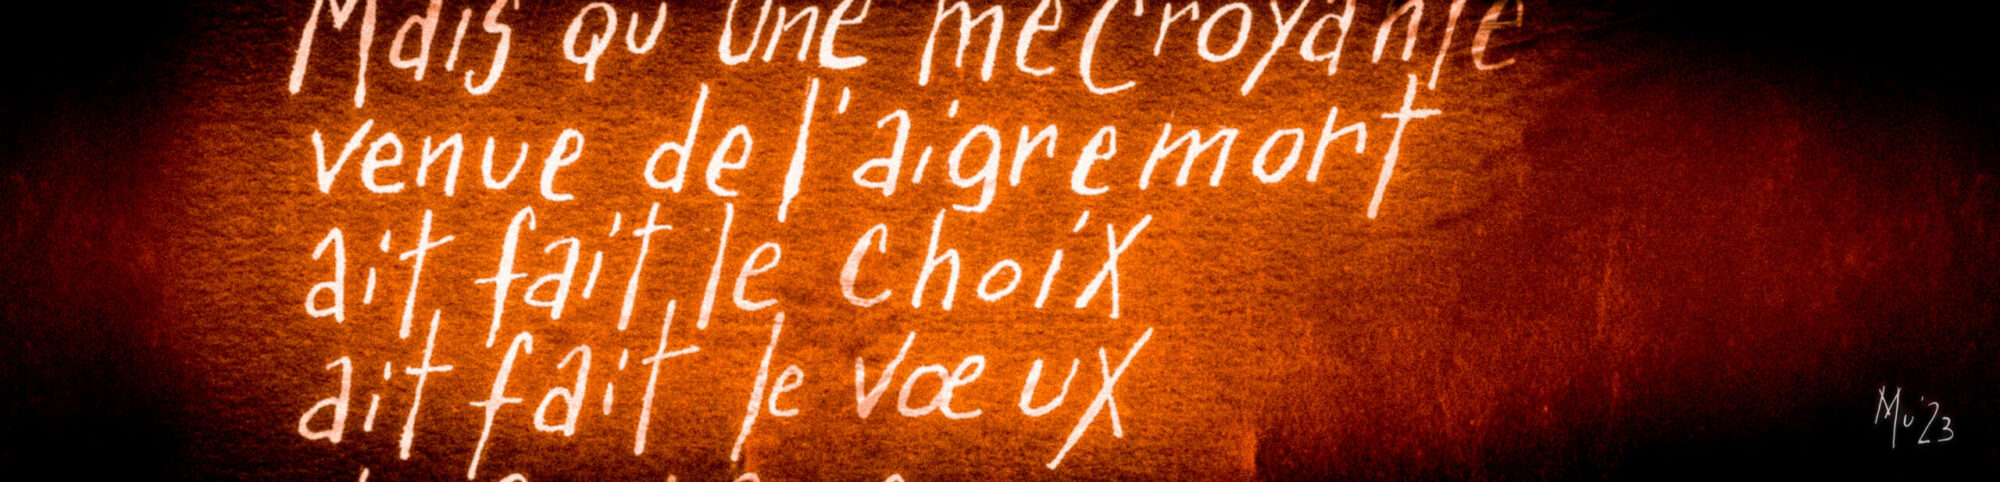 Mais qu'une mécroyante
venue de l'aigremort
ait fait le choix
ait fait le vœux
Mu'23